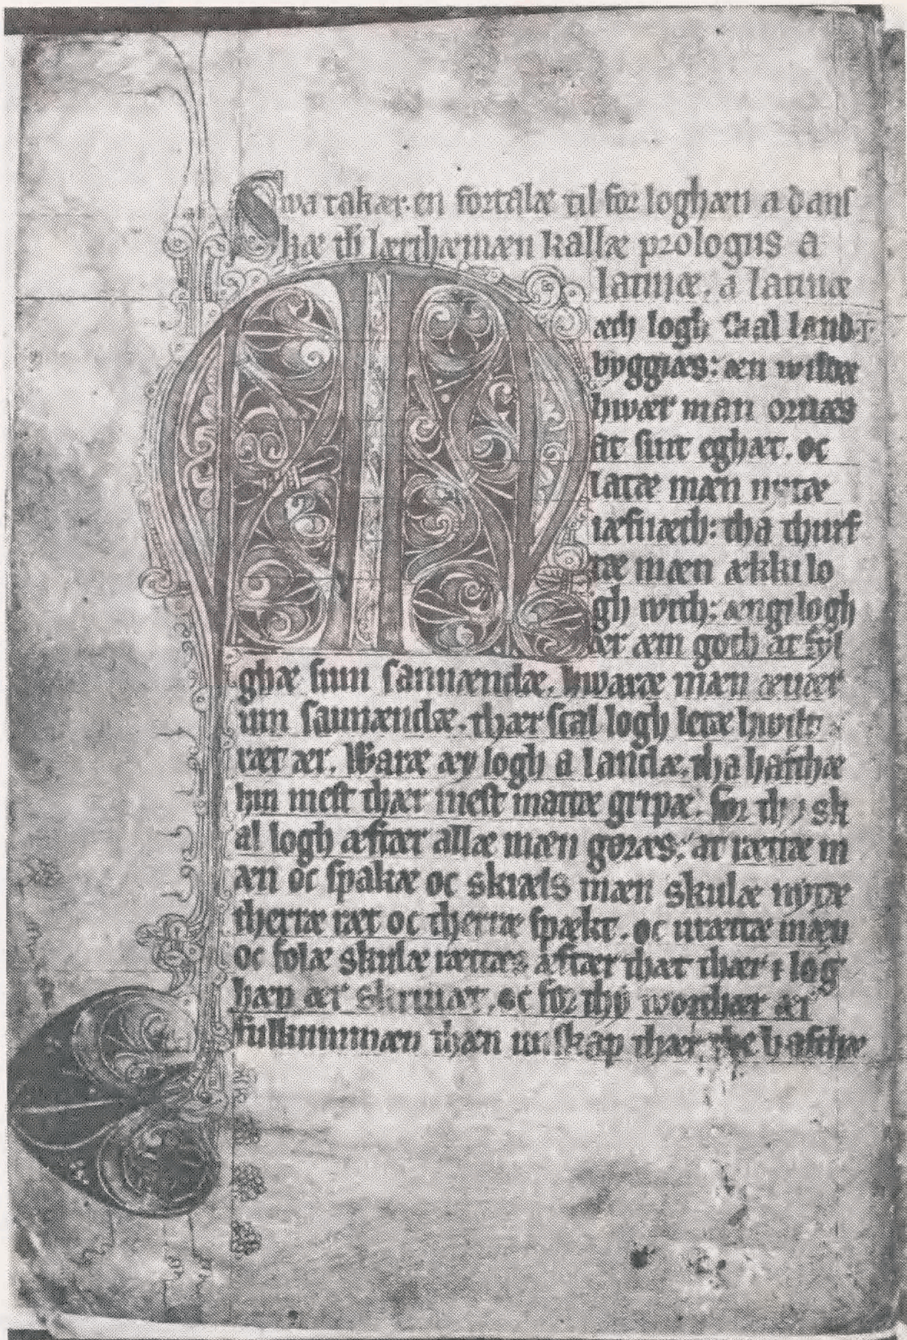 Swa takær. en fortalæ til for loghæn a dans
kæ th lærthæmæn kallæ prologus a
latinæ. a latinæ
Mæth logh skal land
byggias: æn wildæ
hwær man ornæs
at sint eghæt. oc
latæ mæn nytæ
iæfnæth: tha thurf
tæ mæn ækki lo
gh with: ængi logh
ær æm goth at fyl
ghæ sum sannændæ. hwaræ mæn æuær
um sannændæ. thær scal logh letæ hwilt
ræt ær. Waræ æy logh a landæ. tha hafthæ
hin mest thær mest mattæ gripæ. for thy sk
al logh æftær allæ mæn gøræs: at rættæ m
æn oc spakæ oc skiæls mæn skulæ nytæ
therræ ræt oc therræ spækt. oc urættæ mæn
oc folæ skulæ rættæs æftær that thær i log
hæn ær skriuat. oc for thy worthær ær
fulkummæn thæn unskap thær the hafthæ